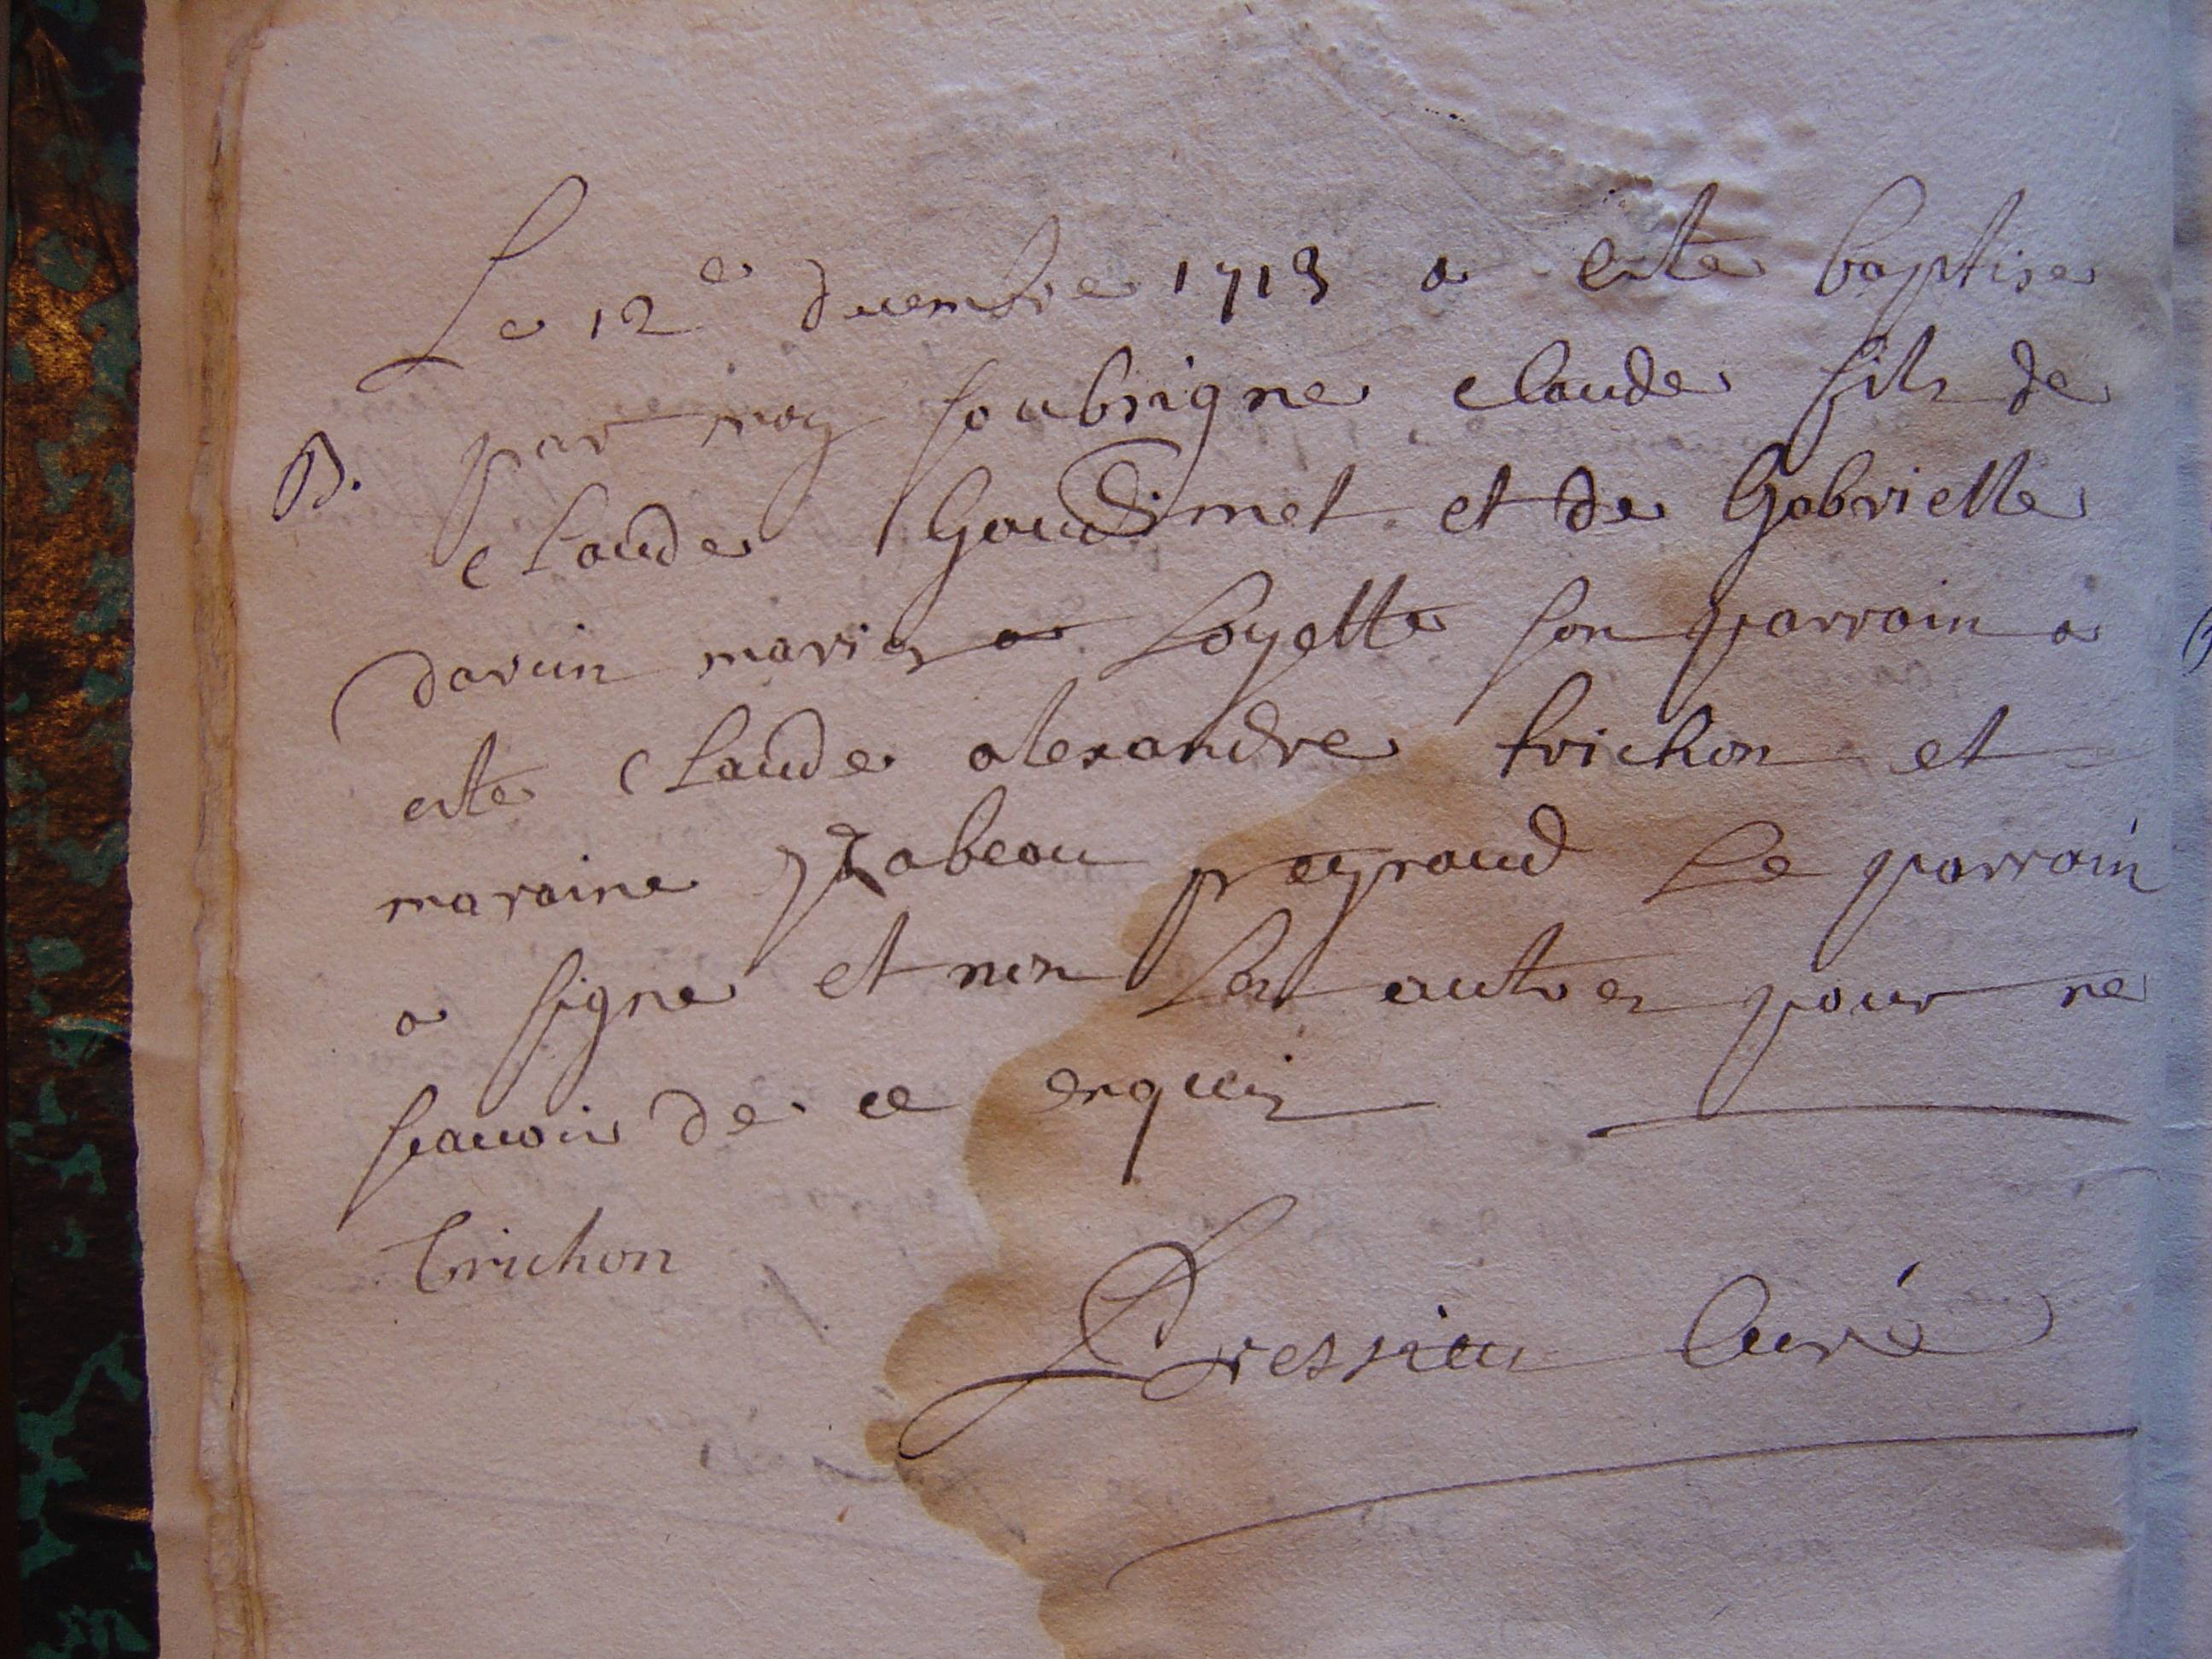 Le 12e decembre 1713 a este baptise
B. par moy soubsigne claude fils de
claude Goudimet et de Gabrielle
Darcin maries a Loyette son parrain a
este claude alexandre trichon et
maraine yzabeau pegraud Le parrain
a signe et non Les autres pour ne
scauoir de ce enquis
Trichon
Dressieu Curé